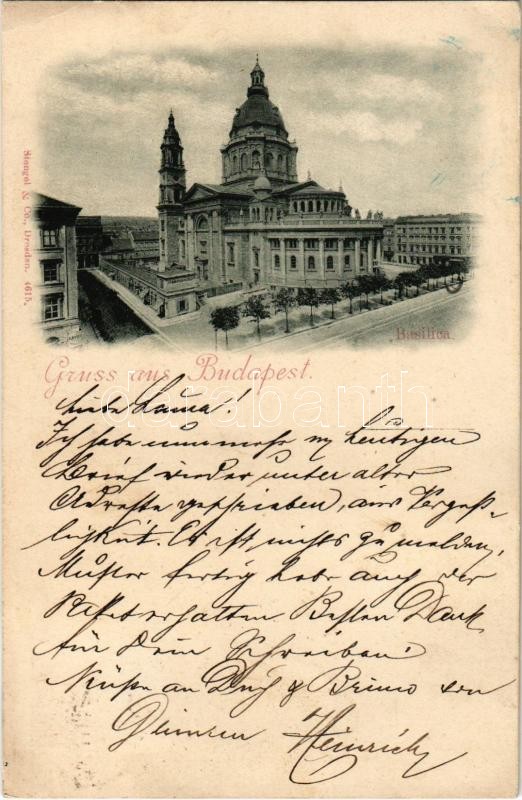 Stengel & Co., Dresden. 4615.
Basilica.
Gruss aus Budapest.
darabanth
Liebe Laura!
Ich habe nunmehr m heutigen
Brief wieder unter alter
Adresse geschrieben, aus Vergeß-
lichkeit. Es ist nichts zu melden,
Muster fertig habe auch der
erhalten. Besten Dank
für Dein Schreiben!
Küße an Dich & Bruno von
Heinrich